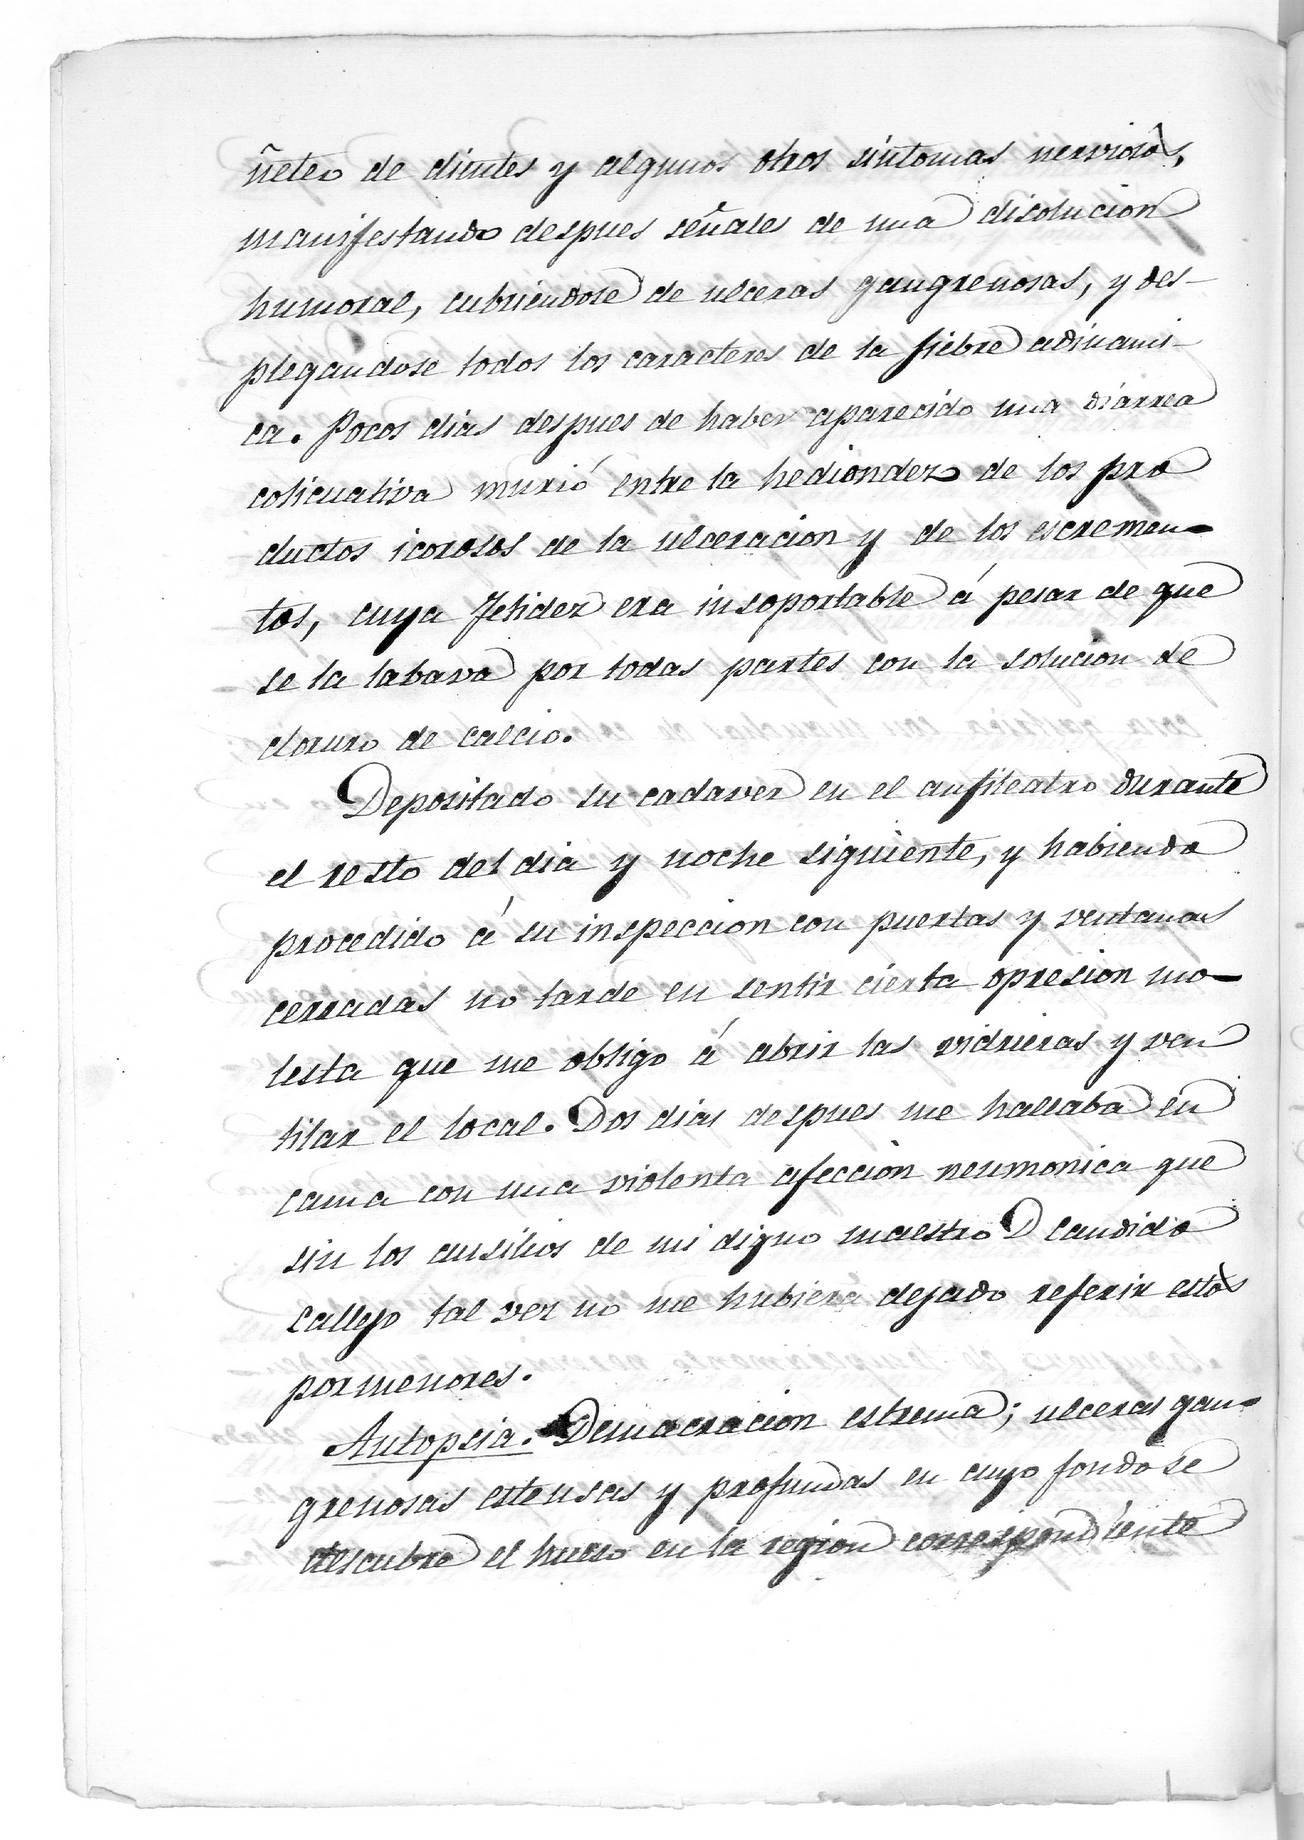 ñeteo de dientes y algunos otros síntomas nerviosos,
manifestando despues señales de una disolucion
humoral, cubriendose de ulceras gangrenosas, y des-
plegandose todos los caracteres de la fiebre adinami-
ca. Pocos dias despues de haber aparecido una diarrea
colicuativa murió entre la hediondez de los pro
ductos icorosos de la ulceracion y de los escremen-
tos, cuya fetidez era insoportable á pesar de que
se la labava por todas partes con la solucion de
cloruro de calcio.
Depositado su cadaver en el anfiteatro durante
el resto del dia y noche siguiente, y habiendo
procedido á su inspeccion con puertas y ventanas
cerradas no tarde en sentir cierta opresion mo-
lesta que me obligo á abrir las vidrieras y ven
tilar el local. Dos dias despues me hallaba en
cama con una violenta afeccion neumonica que
sin los ausilios de mi digno maestro D Candido
Callejo tal vez no me hubiera dejado referir estos
pormenores.
Autopsia. Demacracion estrema; ulceras gan-
grenosas estensas y profundas en cuyo fondo se
descubre el hueso en la region correspondiente